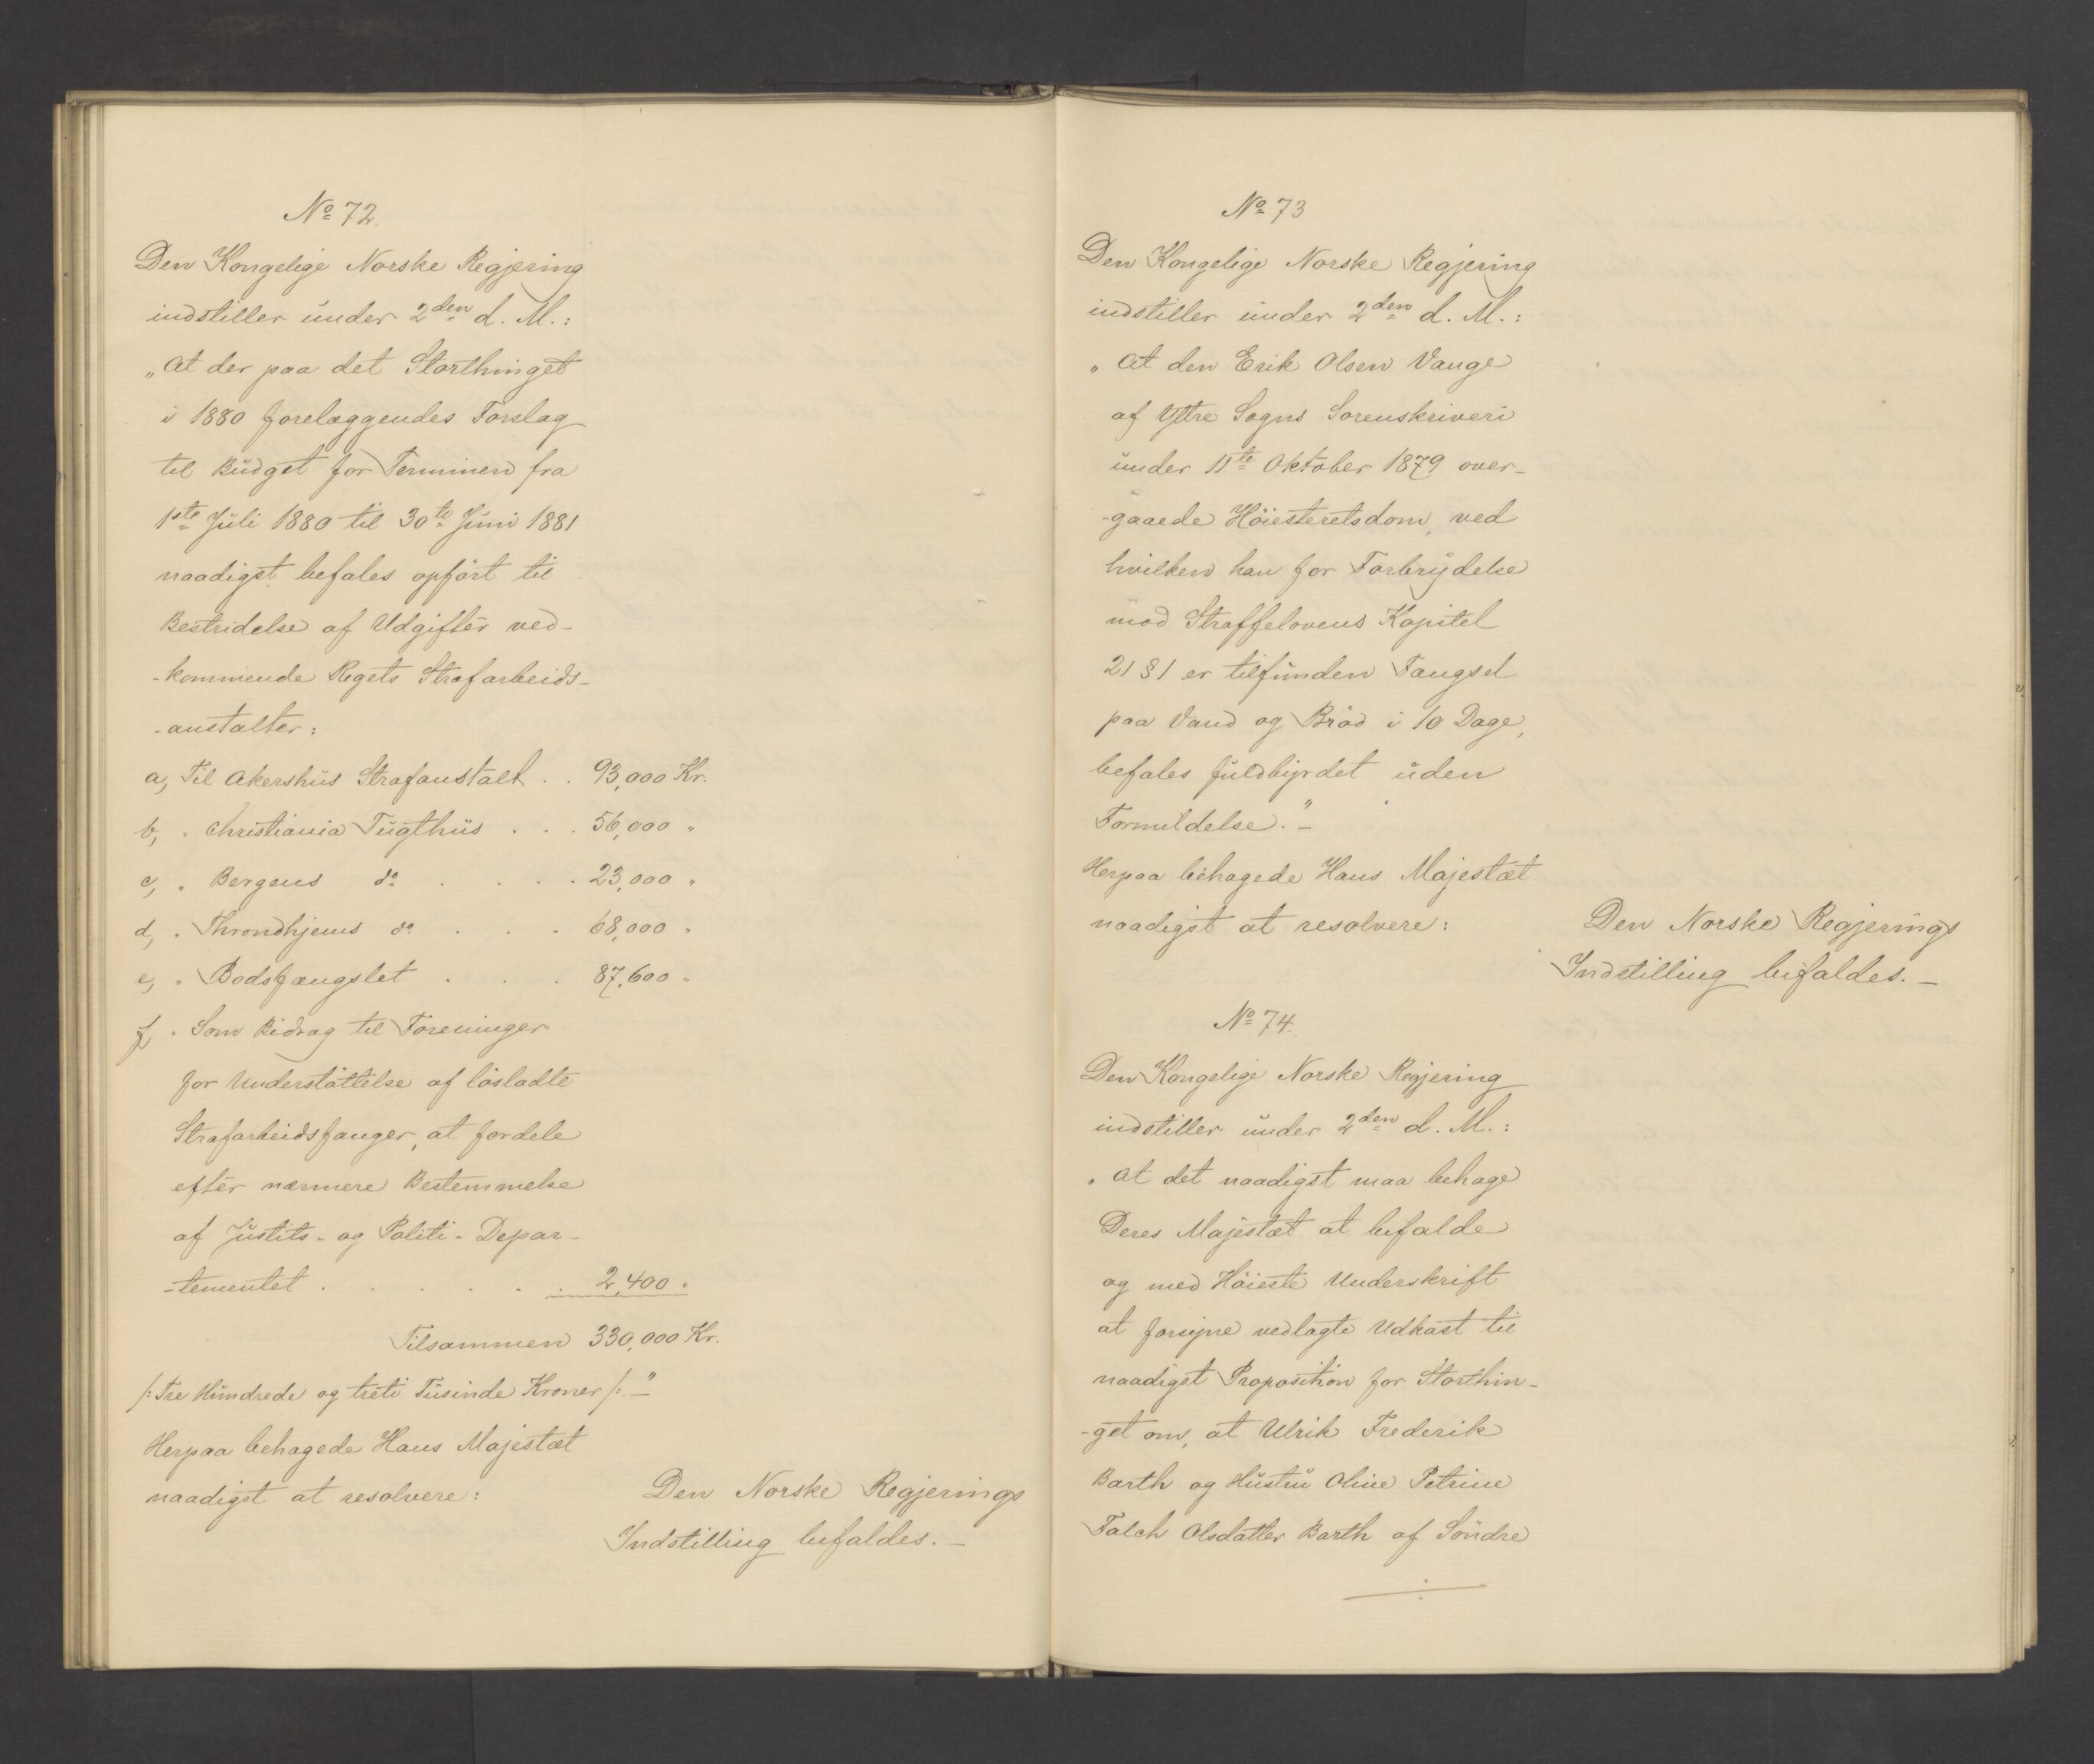 No 72.
Den Kongelige Norske Regjering
indstiller under 2den d. M.:
„At der paa det Storthinget
i 1880 forelæggendes Forslag
til Budget for Terminen fra
1ste Juli 1880 til 30te Juni 1881
naadigst befales opført til
Bestridelse af Udgifter ved-
-kommende Rigets Strafarbeids-
-anstalter:
a, Til Akershus Strafanstalt . . 93,000 Kr.
b, „ Christiania Tugthus . . . 56,000 „
c, „ Bergens do . . . . 23,000 „
d, „ Throndhjems do . . . 68,000 „
e, „ Bodsfængslet . . . 87,600 „
f, „ Som Bidrag til Foreninger
for Understøttelse af løsladte
Strafarbeidsfanger, at fordele
efter nærmere Bestemmelse
af Justits- og Politi-Depar-
-tementet . . . . . . 2,400 „
Tilsammen 330,000 Kr.
/: Tre Hundrede og treti Tusinde Kroner :/. –"
Herpaa behagede Hans Majestæt
naadigst at resolvere:
Den Norske Regjerings
Indstilling bifaldes. –
No 73
Den Kongelige Norske Regjering
indstiller under 2den d. M.:
„At den Erik Olsen Vange
af Yttre Sogns Sorenskriveri
under 11te Oktober 1879 over-
-gaaede Høiesteretsdom, ved
hvilken han for Forbrydelse
mod Straffelovens Kapitel
21 § 1 er tilfunden Fængsel
paa Vand og Brød i 10 Dage,
befales fuldbyrdet uden
Formildelse." –
Herpaa behagede Hans Majestæt
naadigst at resolvere:
Den Norske Regjerings
Indstilling bifaldes. –
No 74.
Den Kongelige Norske Regjering
indstiller under 2den d. M.:
„At det naadigst maa behage
Deres Majestæt at bifalde
og med Høieste Underskrift
at forsyne vedlagte Udkast til
naadigst Proposition for Storthin-
-get om, at Ulrik Frederik
Barth og Hustru Oline Petrine
Falch Olsdatter Barth af Søndre